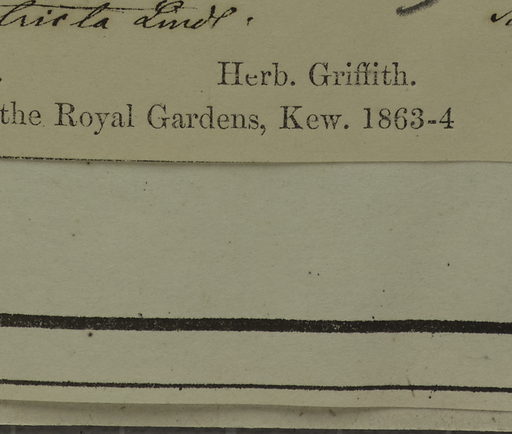 tricta Lindl.
Herb. Griffith.
the Royal Gardens, Kew. 1863-4